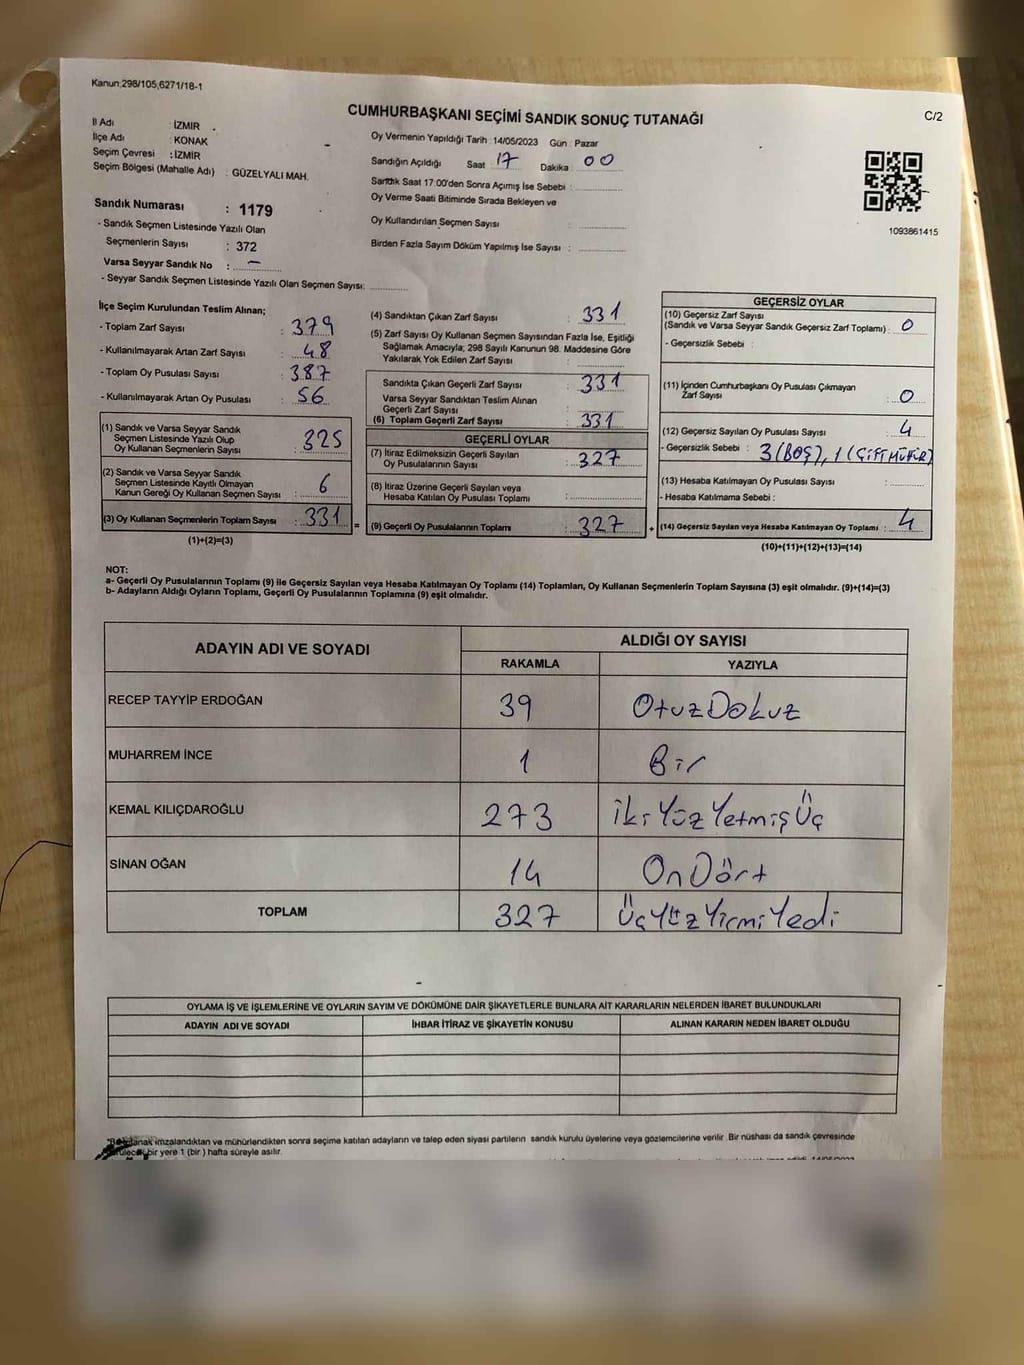 Kanun;298/105,6271/18-1
CUMHURBAŞKANI SEÇİMİ SANDIK SONUÇ TUTANAĞI
C/2
İl Adı : İZMİR
İlçe Adı : KONAK
Seçim Çevresi : İZMİR
Seçim Bölgesi (Mahalle Adı) : GÜZELYALI MAH.
Sandık Numarası : 1179
- Sandık Seçmen Listesinde Yazılı Olan
Seçmenlerin Sayısı : 372
Varsa Seyyar Sandık No : –
- Seyyar Sandık Seçmen Listesinde Yazılı Olan Seçmen Sayısı:
Oy Vermenin Yapıldığı Tarih : 14/05/2023 Gün : Pazar
Sandığın Açıldığı Saat 17 Dakika 00
Sandık Saat 17:00'den Sonra Açımış İse Sebebi :
Oy Verme Saati Bitiminde Sırada Bekleyen ve
Oy Kullandırılan Seçmen Sayısı
Birden Fazla Sayım Döküm Yapılmış İse Sayısı :
1093861415
İlçe Seçim Kurulundan Teslim Alınan;
- Toplam Zarf Sayısı : 379
- Kullanılmayarak Artan Zarf Sayısı : 48
- Toplam Oy Pusulası Sayısı : 387
- Kullanılmayarak Artan Oy Pusulası : 56
(1) Sandık ve Varsa Seyyar Sandık
Seçmen Listesinde Yazılı Olup
Oy Kullanan Seçmenlerin Sayısı : 325
(2) Sandık ve Varsa Seyyar Sandık
Seçmen Listesinde Kayıtlı Olmayan
Kanun Gereği Oy Kullanan Seçmen Sayısı : 6
(3) Oy Kullanan Seçmenlerin Toplam Sayısı : 331 =
(1)+(2)=(3)
(4) Sandıktan Çıkan Zarf Sayısı : 331
(5) Zarf Sayısı Oy Kullanan Seçmen Sayısından Fazla İse, Eşitliği
Sağlamak Amacıyla, 298 Sayılı Kanunun 98. Maddesine Göre
Yakılarak Yok Edilen Zarf Sayısı :
Sandıkta Çıkan Geçerli Zarf Sayısı : 331
Varsa Seyyar Sandıktan Teslim Alınan
Geçerli Zarf Sayısı :
(6) Toplam Geçerli Zarf Sayısı : 331
GEÇERLİ OYLAR
(7) İtiraz Edilmeksizin Geçerli Sayılan
Oy Pusulalarının Sayısı : 327
(8) İtiraz Üzerine Geçerli Sayılan veya
Hesaba Katılan Oy Pusulası Toplamı :
(9) Geçerli Oy Pusulalarının Toplamı : 327 +
GEÇERSİZ OYLAR
(10) Geçersiz Zarf Sayısı
(Sandık ve Varsa Seyyar Sandık Geçersiz Zarf Toplamı) : 0
- Geçersizlik Sebebi :
(11) İçinden Cumhurbaşkanı Oy Pusulası Çıkmayan
Zarf Sayısı : 0
(12) Geçersiz Sayılan Oy Pusulası Sayısı : 4
- Geçersizlik Sebebi : 3 (BOŞ), 1 (ÇİFT MÜHÜR)
(13) Hesaba Katılmayan Oy Pusulası Sayısı :
- Hesaba Katılmama Sebebi :
(14) Geçersiz Sayılan veya Hesaba Katılmayan Oy Toplamı : 4
(10)+(11)+(12)+(13)=(14)
NOT:
a- Geçerli Oy Pusulalarının Toplamı (9) ile Geçersiz Sayılan veya Hesaba Katılmayan Oy Toplamı (14) Toplamları, Oy Kullanan Seçmenlerin Toplam Sayısına (3) eşit olmalıdır. (9)+(14)=(3)
b- Adayların Aldığı Oyların Toplamı, Geçerli Oy Pusulalarının Toplamına (9) eşit olmalıdır.
ADAYIN ADI VE SOYADI
ALDIĞI OY SAYISI
RAKAMLA YAZIYLA
RECEP TAYYİP ERDOĞAN 39 OtuzDokuz
MUHARREM İNCE 1 Bir
KEMAL KILIÇDAROĞLU 273 İkiYüzYetmişÜç
SİNAN OĞAN 14 OnDört
TOPLAM 327 ÜçYüzYirmiYedi
OYLAMA İŞ VE İŞLEMLERİNE VE OYLARIN SAYIM VE DÖKÜMÜNE DAİR ŞİKAYETLERLE BUNLARA AİT KARARLARIN NELERDEN İBARET BULUNDUKLARI
ADAYIN ADI VE SOYADI İHBAR İTİRAZ VE ŞİKAYETİN KONUSU ALINAN KARARIN NEDEN İBARET OLDUĞU
imzalandıktan ve mühürlendikten sonra seçime katılan adayların ve talep eden siyasi partilerin sandık kurulu üyelerine veya gözlemcilerine verilir. Bir nüshası da sandık çevresinde
bir yere 1 (bir ) hafta süreyle asılır.